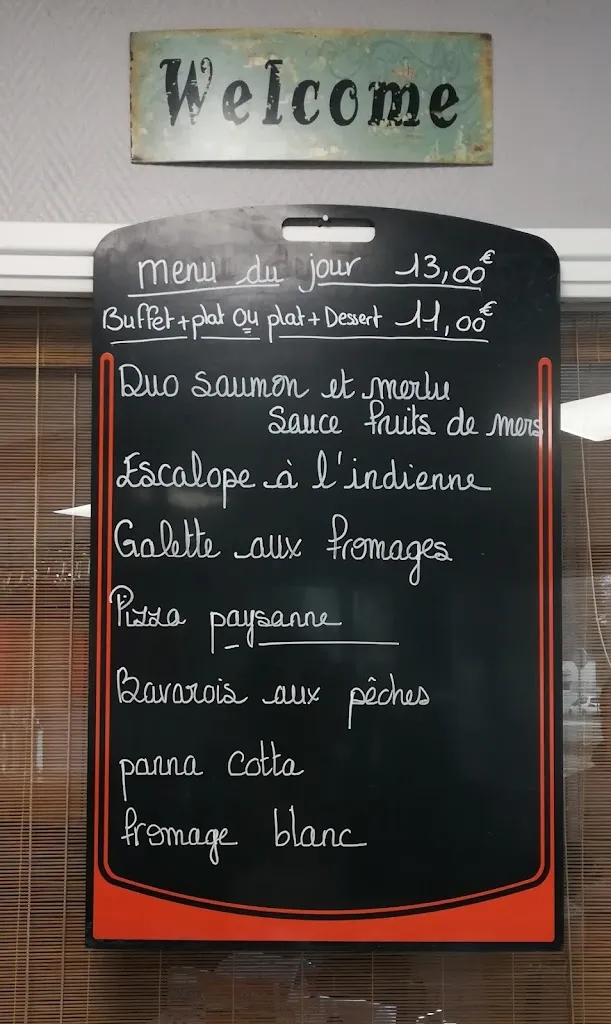 Welcome
menu du jour 13,00€
Buffet + plat OU plat + Dessert 11,00€
Duo saumon et merlu
sauce fruits de mers
Escalope à l'indienne
Galette aux fromages
Pizza paysanne
Bavarois aux pêches
panna cotta
fromage blanc